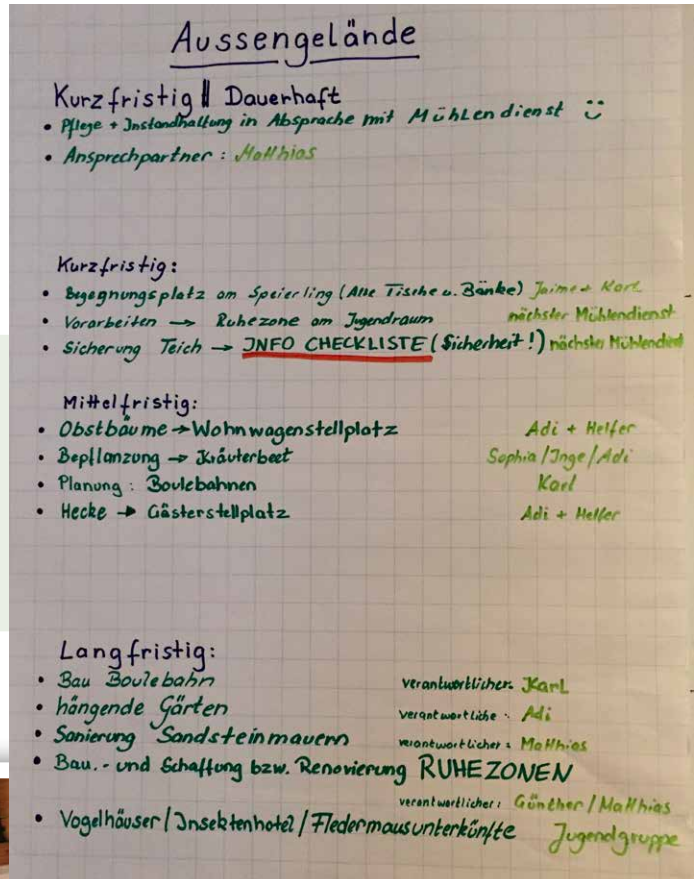 Aussengelände
Kurzfristig || Dauerhaft
• Pflege + Instandhaltung in Absprache mit Mühlendienst
• Ansprechpartner: Matthias
Kurzfristig:
• Begegnungsplatz am Speierling (Alte Tische u. Bänke) Jaime + Karl
• Vorarbeiten → Ruhezone am Jugendraum nächster Mühlendienst
• Sicherung Teich → INFO CHECKLISTE (Sicherheit!) nächster Mühlendienst
Mittelfristig:
• Obstbäume → Wohnwagenstellplatz Adi + Helfer
• Bepflanzung → Kräuterbeet Sophia/Inge/Adi
• Planung: Boulebahnen Karl
• Hecke → Gästerstellplatz Adi + Helfer
Langfristig:
• Bau Boulebahn verantwortlicher: Karl
• hängende Gärten verantwortliche: Adi
• Sanierung Sandsteinmauern verantwortlicher: Matthias
• Bau.- und Schaffung bzw. Renovierung RUHEZONEN
verantwortlicher: Günther/Matthias
• Vogelhäuser/Insektenhotel/Fledermausunterkünfte Jugendgruppe